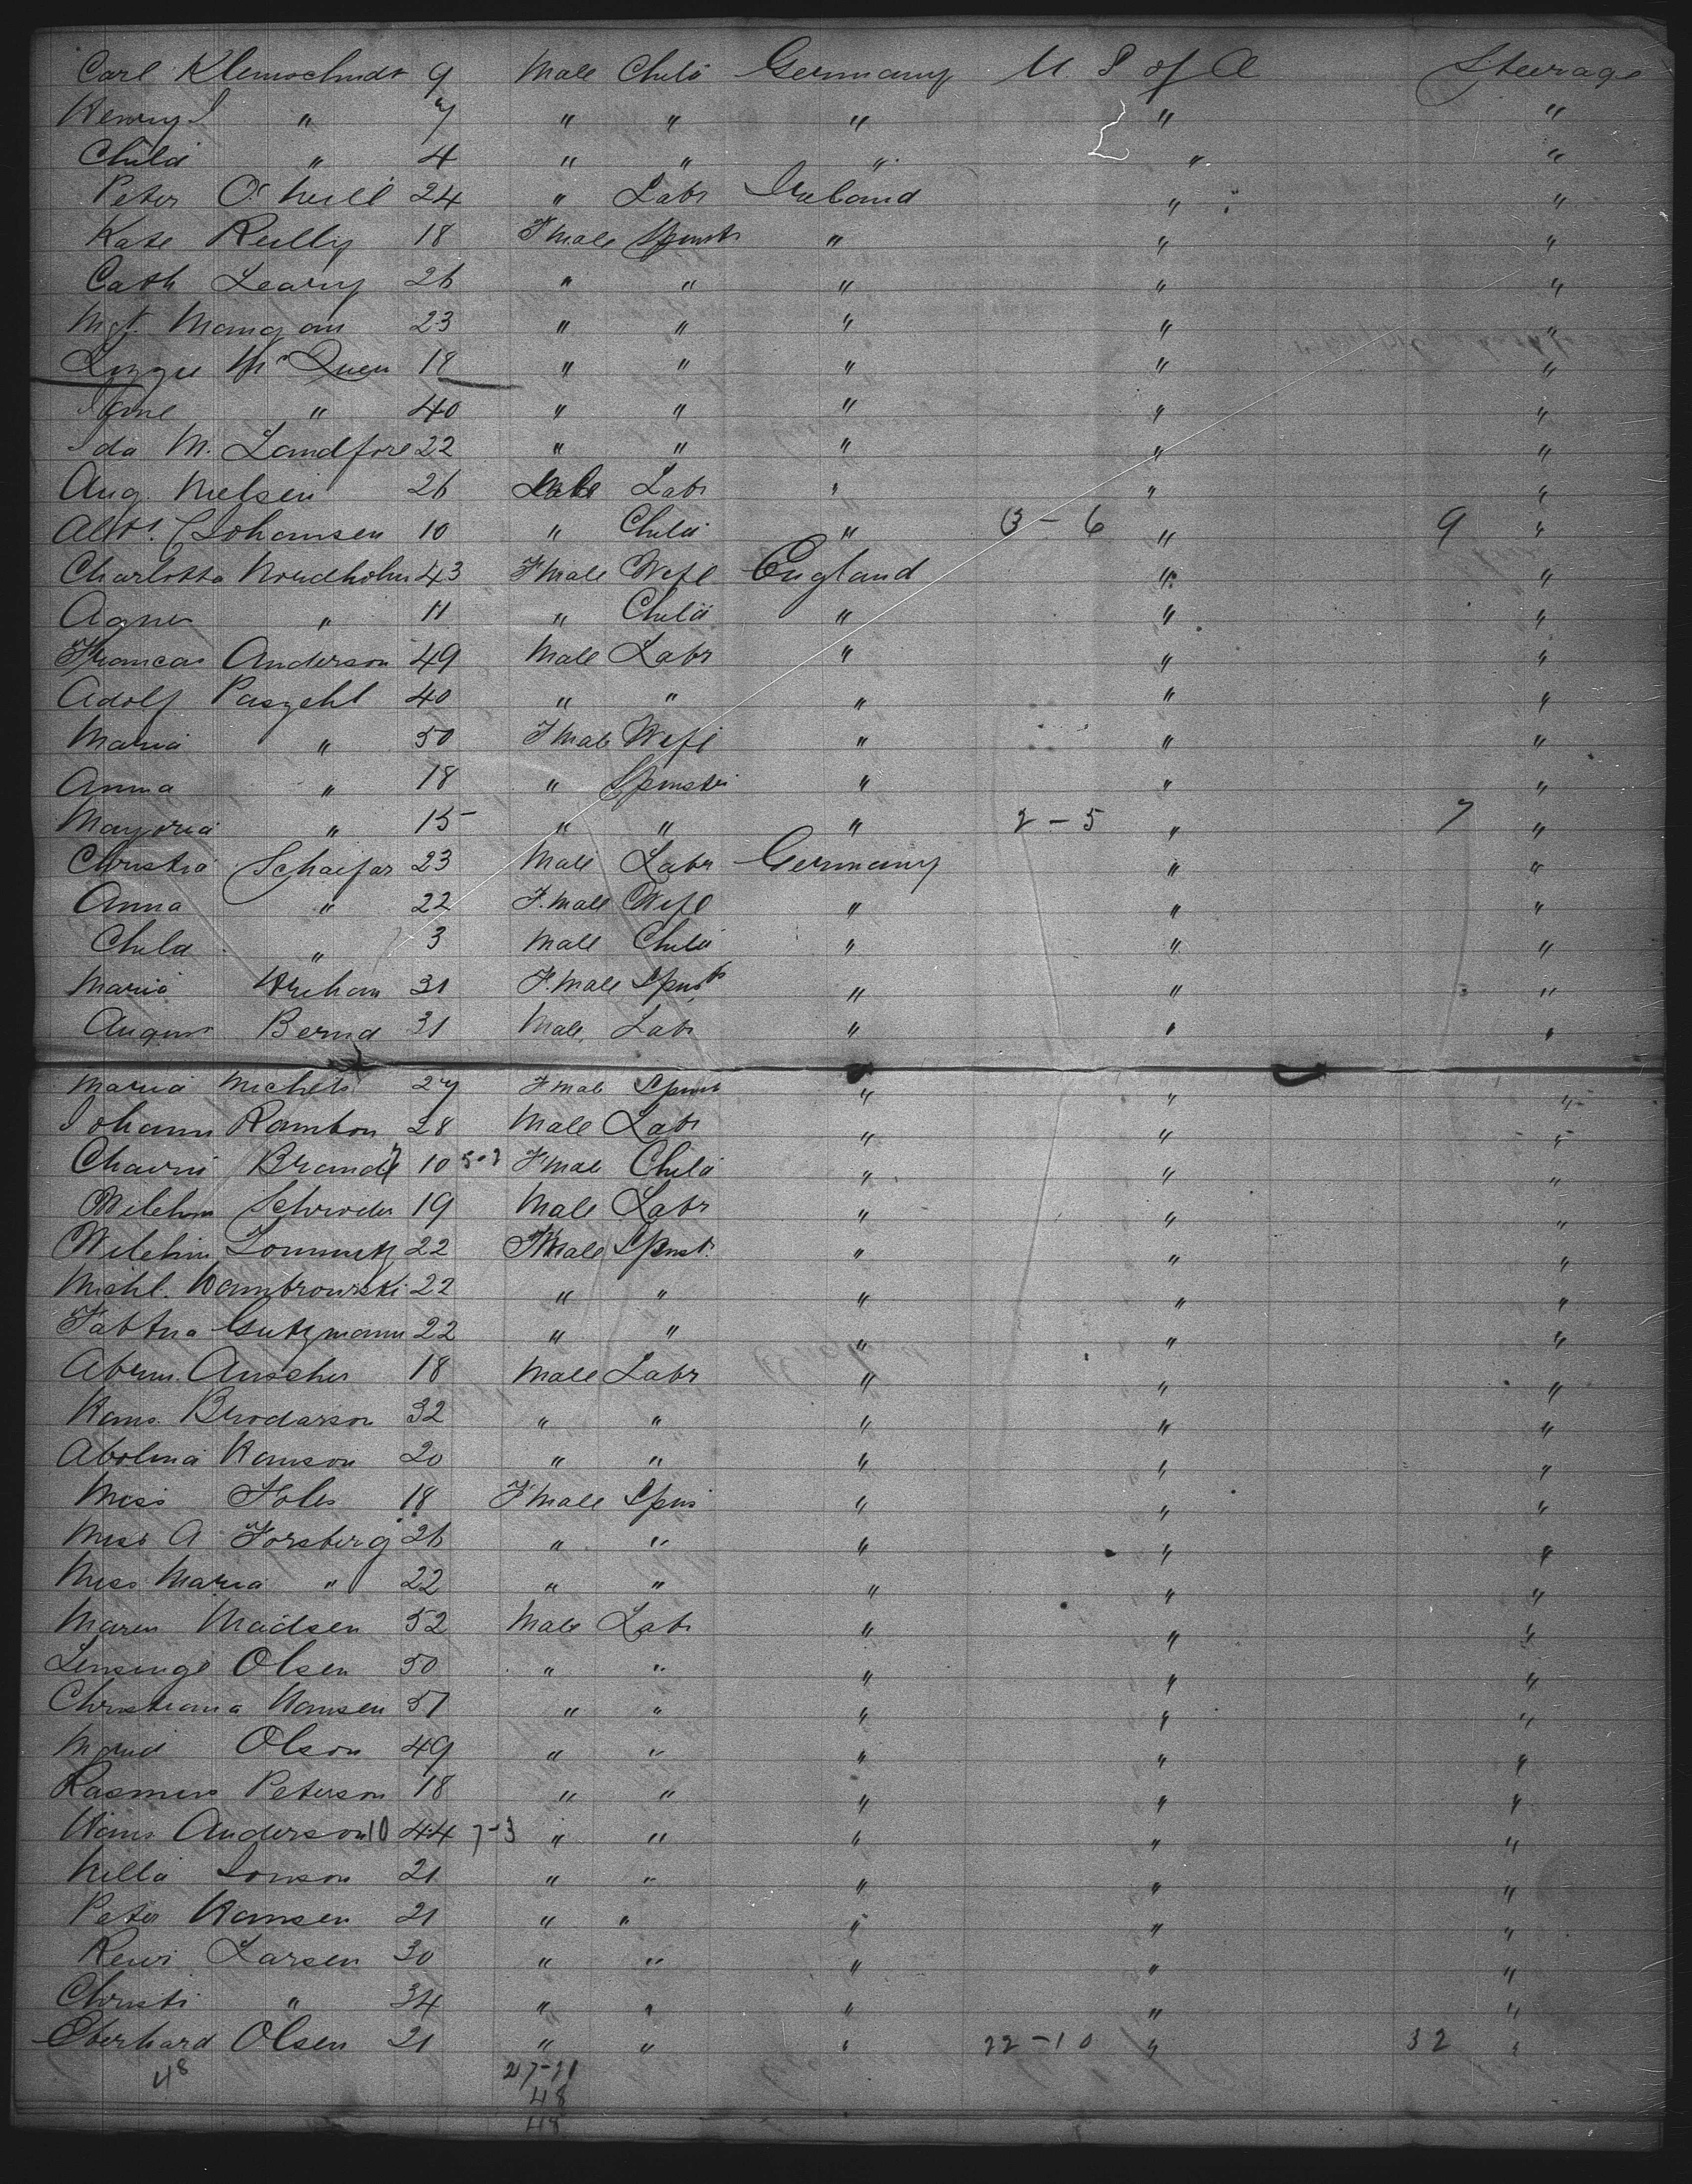 Carl Klemschmdt 9 Male Child Germany U. S of A Steerage
Henry J " 7 " " " " "
Child " 4 " " " " "
Peter O'Neill 24 " Labr Ireland " "
Kate Reilly 18 Fmale Spinstr " " "
Cath Leary 26 " " " " "
Mgt. Mangan 23 " " " " "
Lizzie McQuen 18 " " " " "
Jane " 40 " " " " "
Ida M. Landfore 22 " " " " "
Aug. Nielsen 26 Male Labr " " "
Albt. C Johansen 10 " Child " 3 - 6 " 9 "
Charlotta Nordholm 43 Fmale Wife England " "
Agnes " 11 " Child " " "
Francas Anderson 49 Male Labr " " "
Adolf Paszehl 40 " " " " "
Maria " 50 Fmale Wife " " "
Anna " 18 " Spinster " " "
" 15 " " " 2 - 5 " 7 "
Christia Schaefar 23 Male Labr Germany " "
Anna " 22 F.male Wife " " "
Child " 3 Male Child " " "
Maria 31 F.male Spinst " " "
August Bernd 31 Male Labr " " "
Maria Michels 27 Fmale Spinst " " "
Johann Rambon 28 Male Labr " " "
Brandt 10 Fmale Child " " "
Wilehm Schroder 19 Male Labr " " "
Wilehm 22 Fmale Spinst. " " "
Michl. Dambrowski 22 " " " " "
Gutzmann 22 " " " " "
Abrm. Auscher 18 Male Labr " " "
Hans. Brodarson 32 " " " " "
Abolina Hanson 20 " " " " "
Miss Foles 18 Fmale Spins " " "
Miss A Forsberg 26 " " " " "
Miss Maria " 22 " " " " "
Maren Madsen 52 Male Labr " " "
Olsen 50 " " " " "
Christiana Hansen 57 " " " " "
Olson 49 " " " " "
Rasmus Peterson 18 " " " " "
Hans Anderson 10 44 7-3 " " " " "
Nilla Jonson 21 " " " " "
Peter Hansen 21 " " " " "
Larsen 30 " " " " "
Christi " 34 " " " " "
Eberhard Olsen 21 " " " 22 - 10 " 32 "
48 27-21
48
48